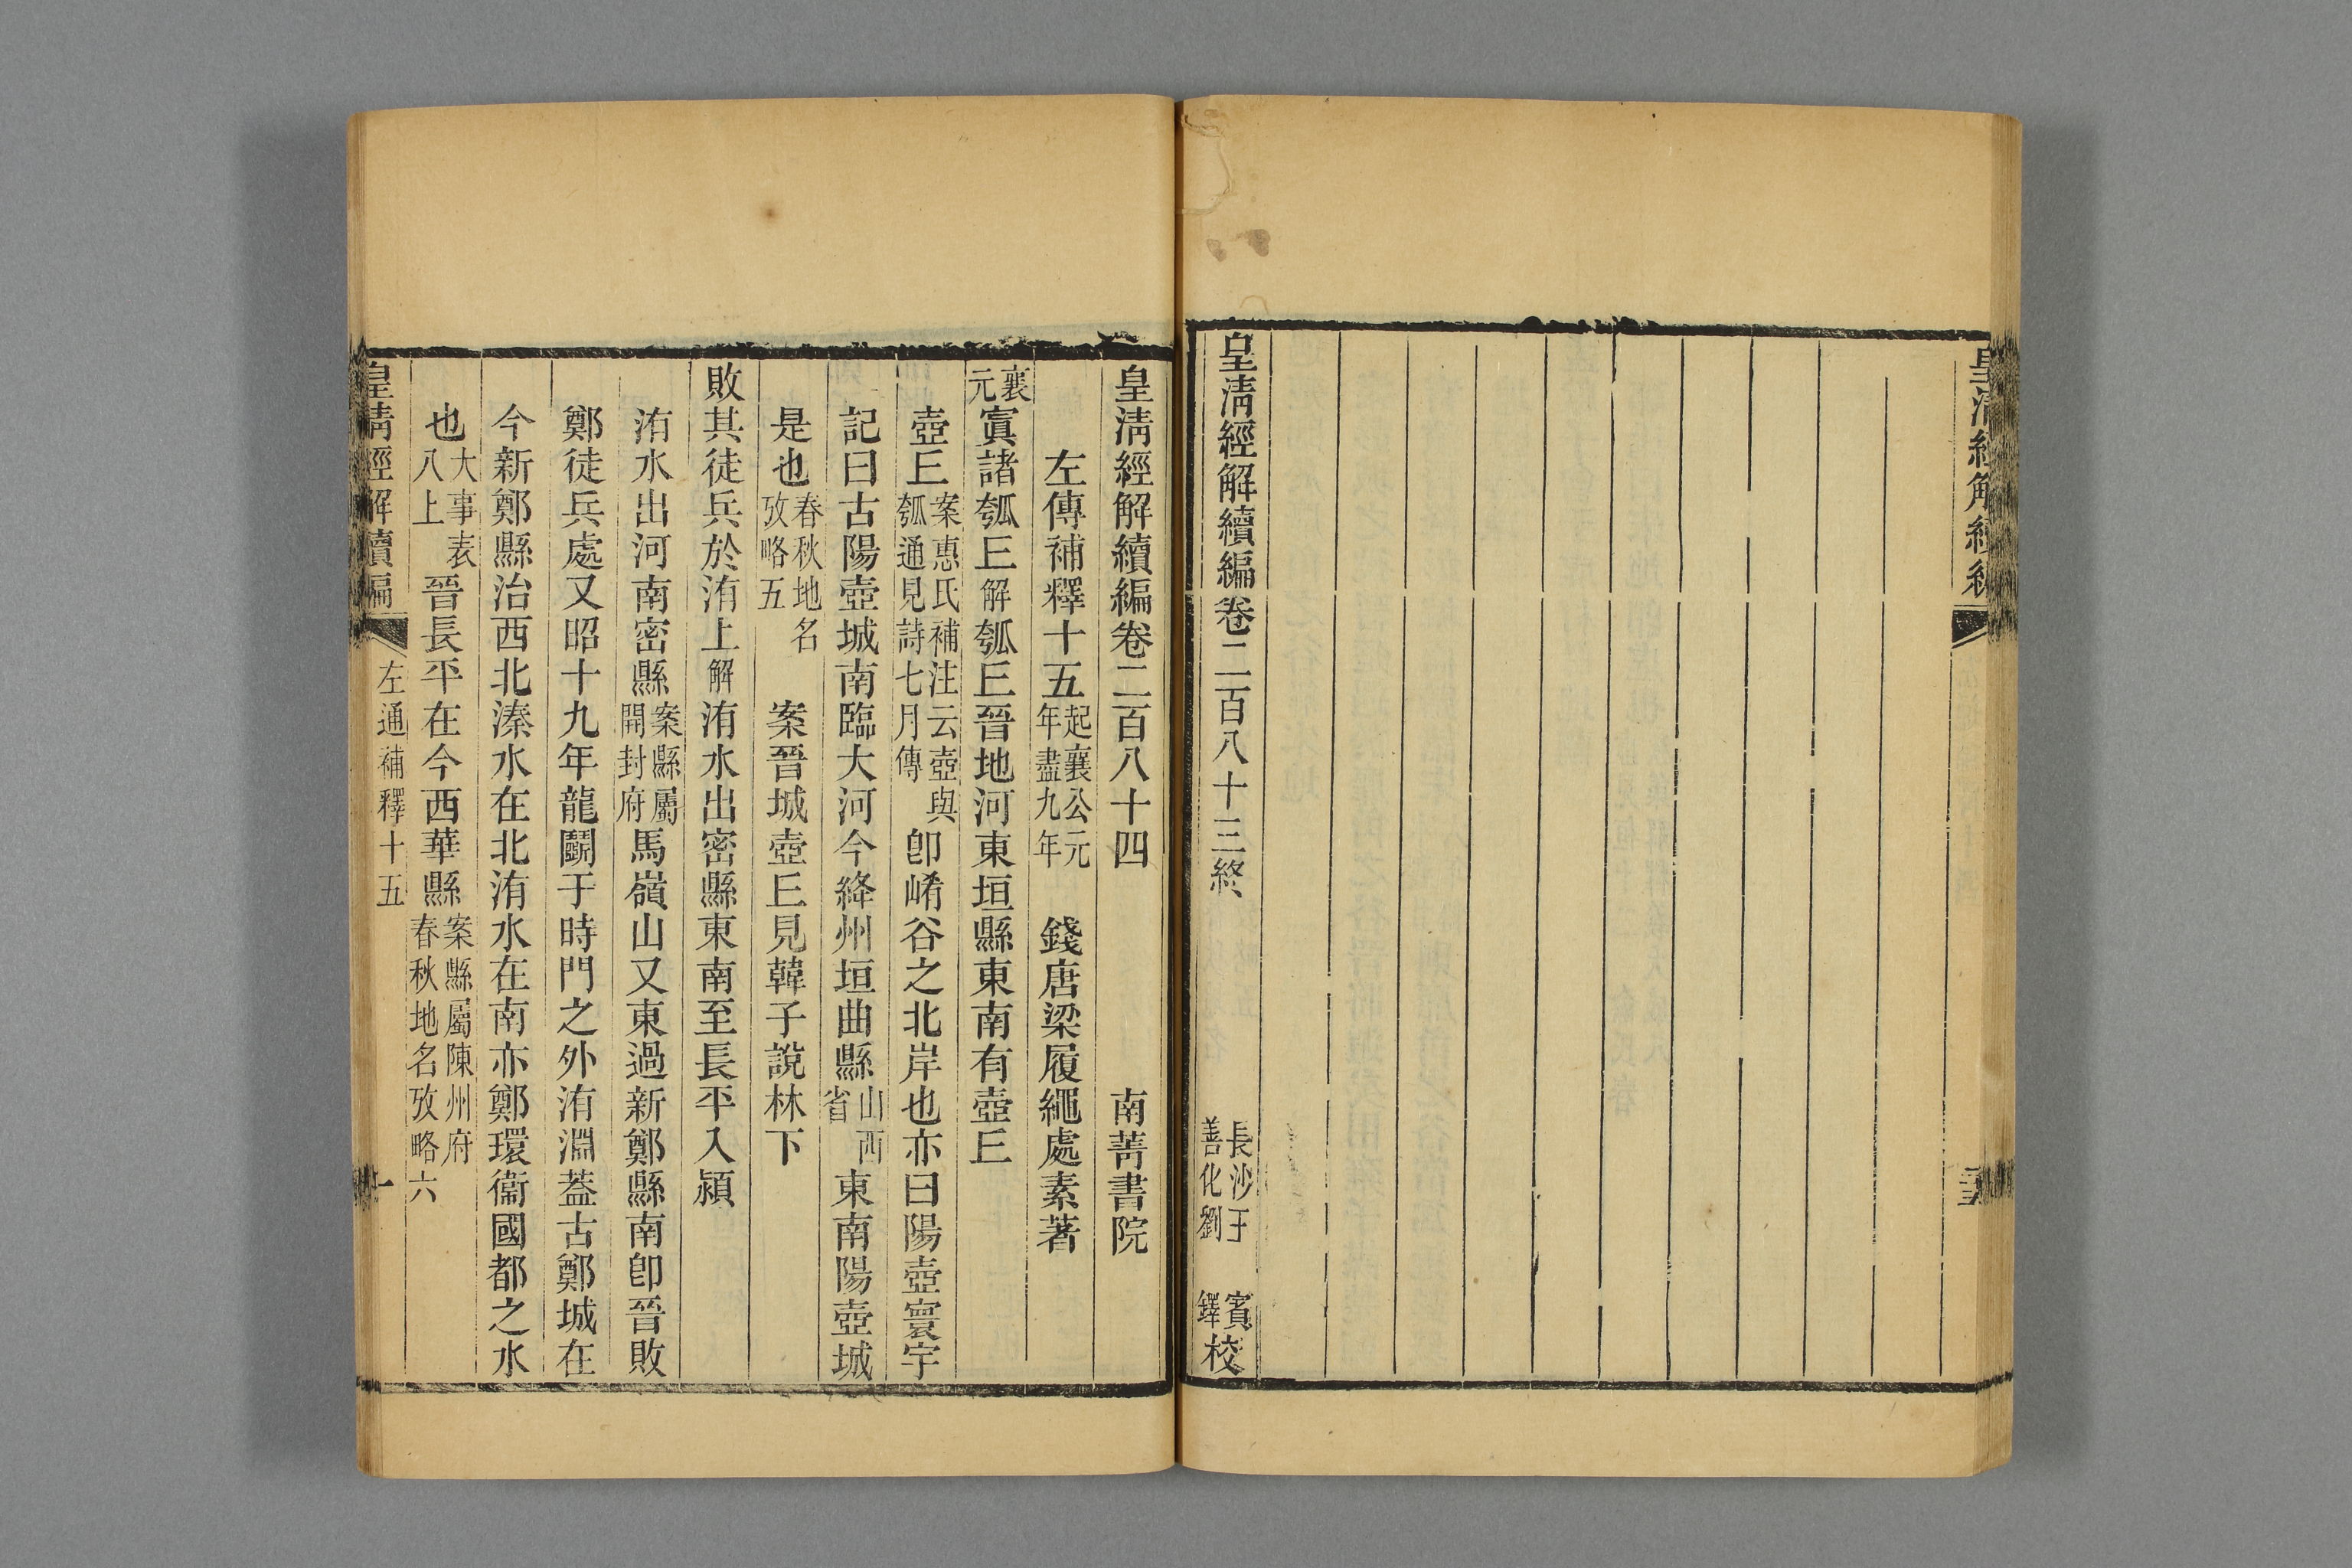 皇清經解續編
皇清經解續編卷二百八十三終
長沙王　賓
善化劉　鐸
校
皇清經解續編卷二百八十四　南菁書院
左傳補釋十五
起襄公元
年盡九年
錢唐梁履繩處素著
襄
元
寘諸瓠𠀌
解
瓠𠀌晉地河東垣縣東南有壺𠀌
壺𠀌
案惠氏補注云壺與
瓠通見詩七月傳
卽崤谷之北岸也亦曰陽壺寰宇
記曰古陽壺城南臨大河今絳州垣曲縣
山西
省
東南陽壺城
是也
春秋地名
攷略五
案晉城壺𠀌見韓子說林下
敗其徒兵於洧上
解
洧水出密縣東南至長平入潁
洧水出河南密縣
案縣屬
開封府
馬嶺山又東過新鄭縣南卽晉敗
鄭徒兵處又昭十九年龍鬭于時門之外洧淵葢古鄭城在
今新鄭縣治西北溱水在北洧水在南亦鄭環衞國都之水
也
大事表
八上
晉長平在今西華縣
案縣屬陳州府
春秋地名攷略六
皇清經解續編
左通補釋十五
一